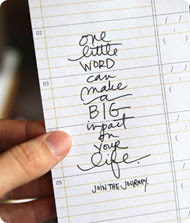 02
one
little
WORD
can
make
a
BIG
impact
on
your
life
05
JOIN THE JOURNEY.